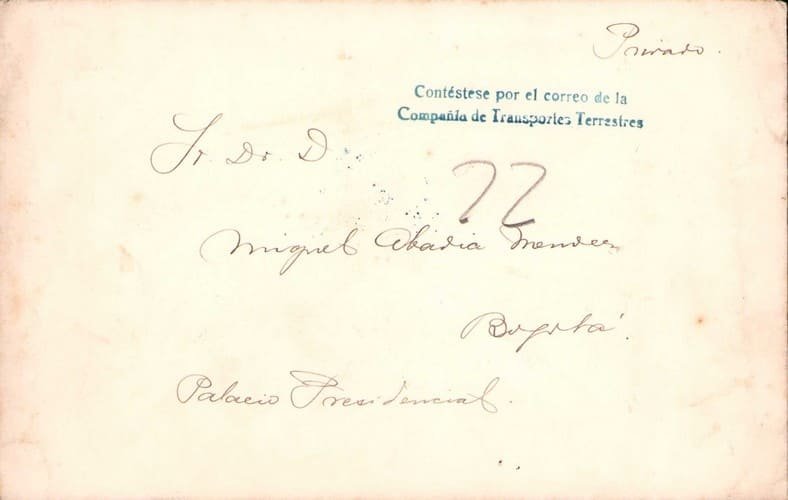 Privado.
Contéstese por el correo de la
Compañía de Transportes Terrestres
Sr. Dr. D.
22
Miguel Abadia Mendez
Bogotá.
Palacio Presidencial.